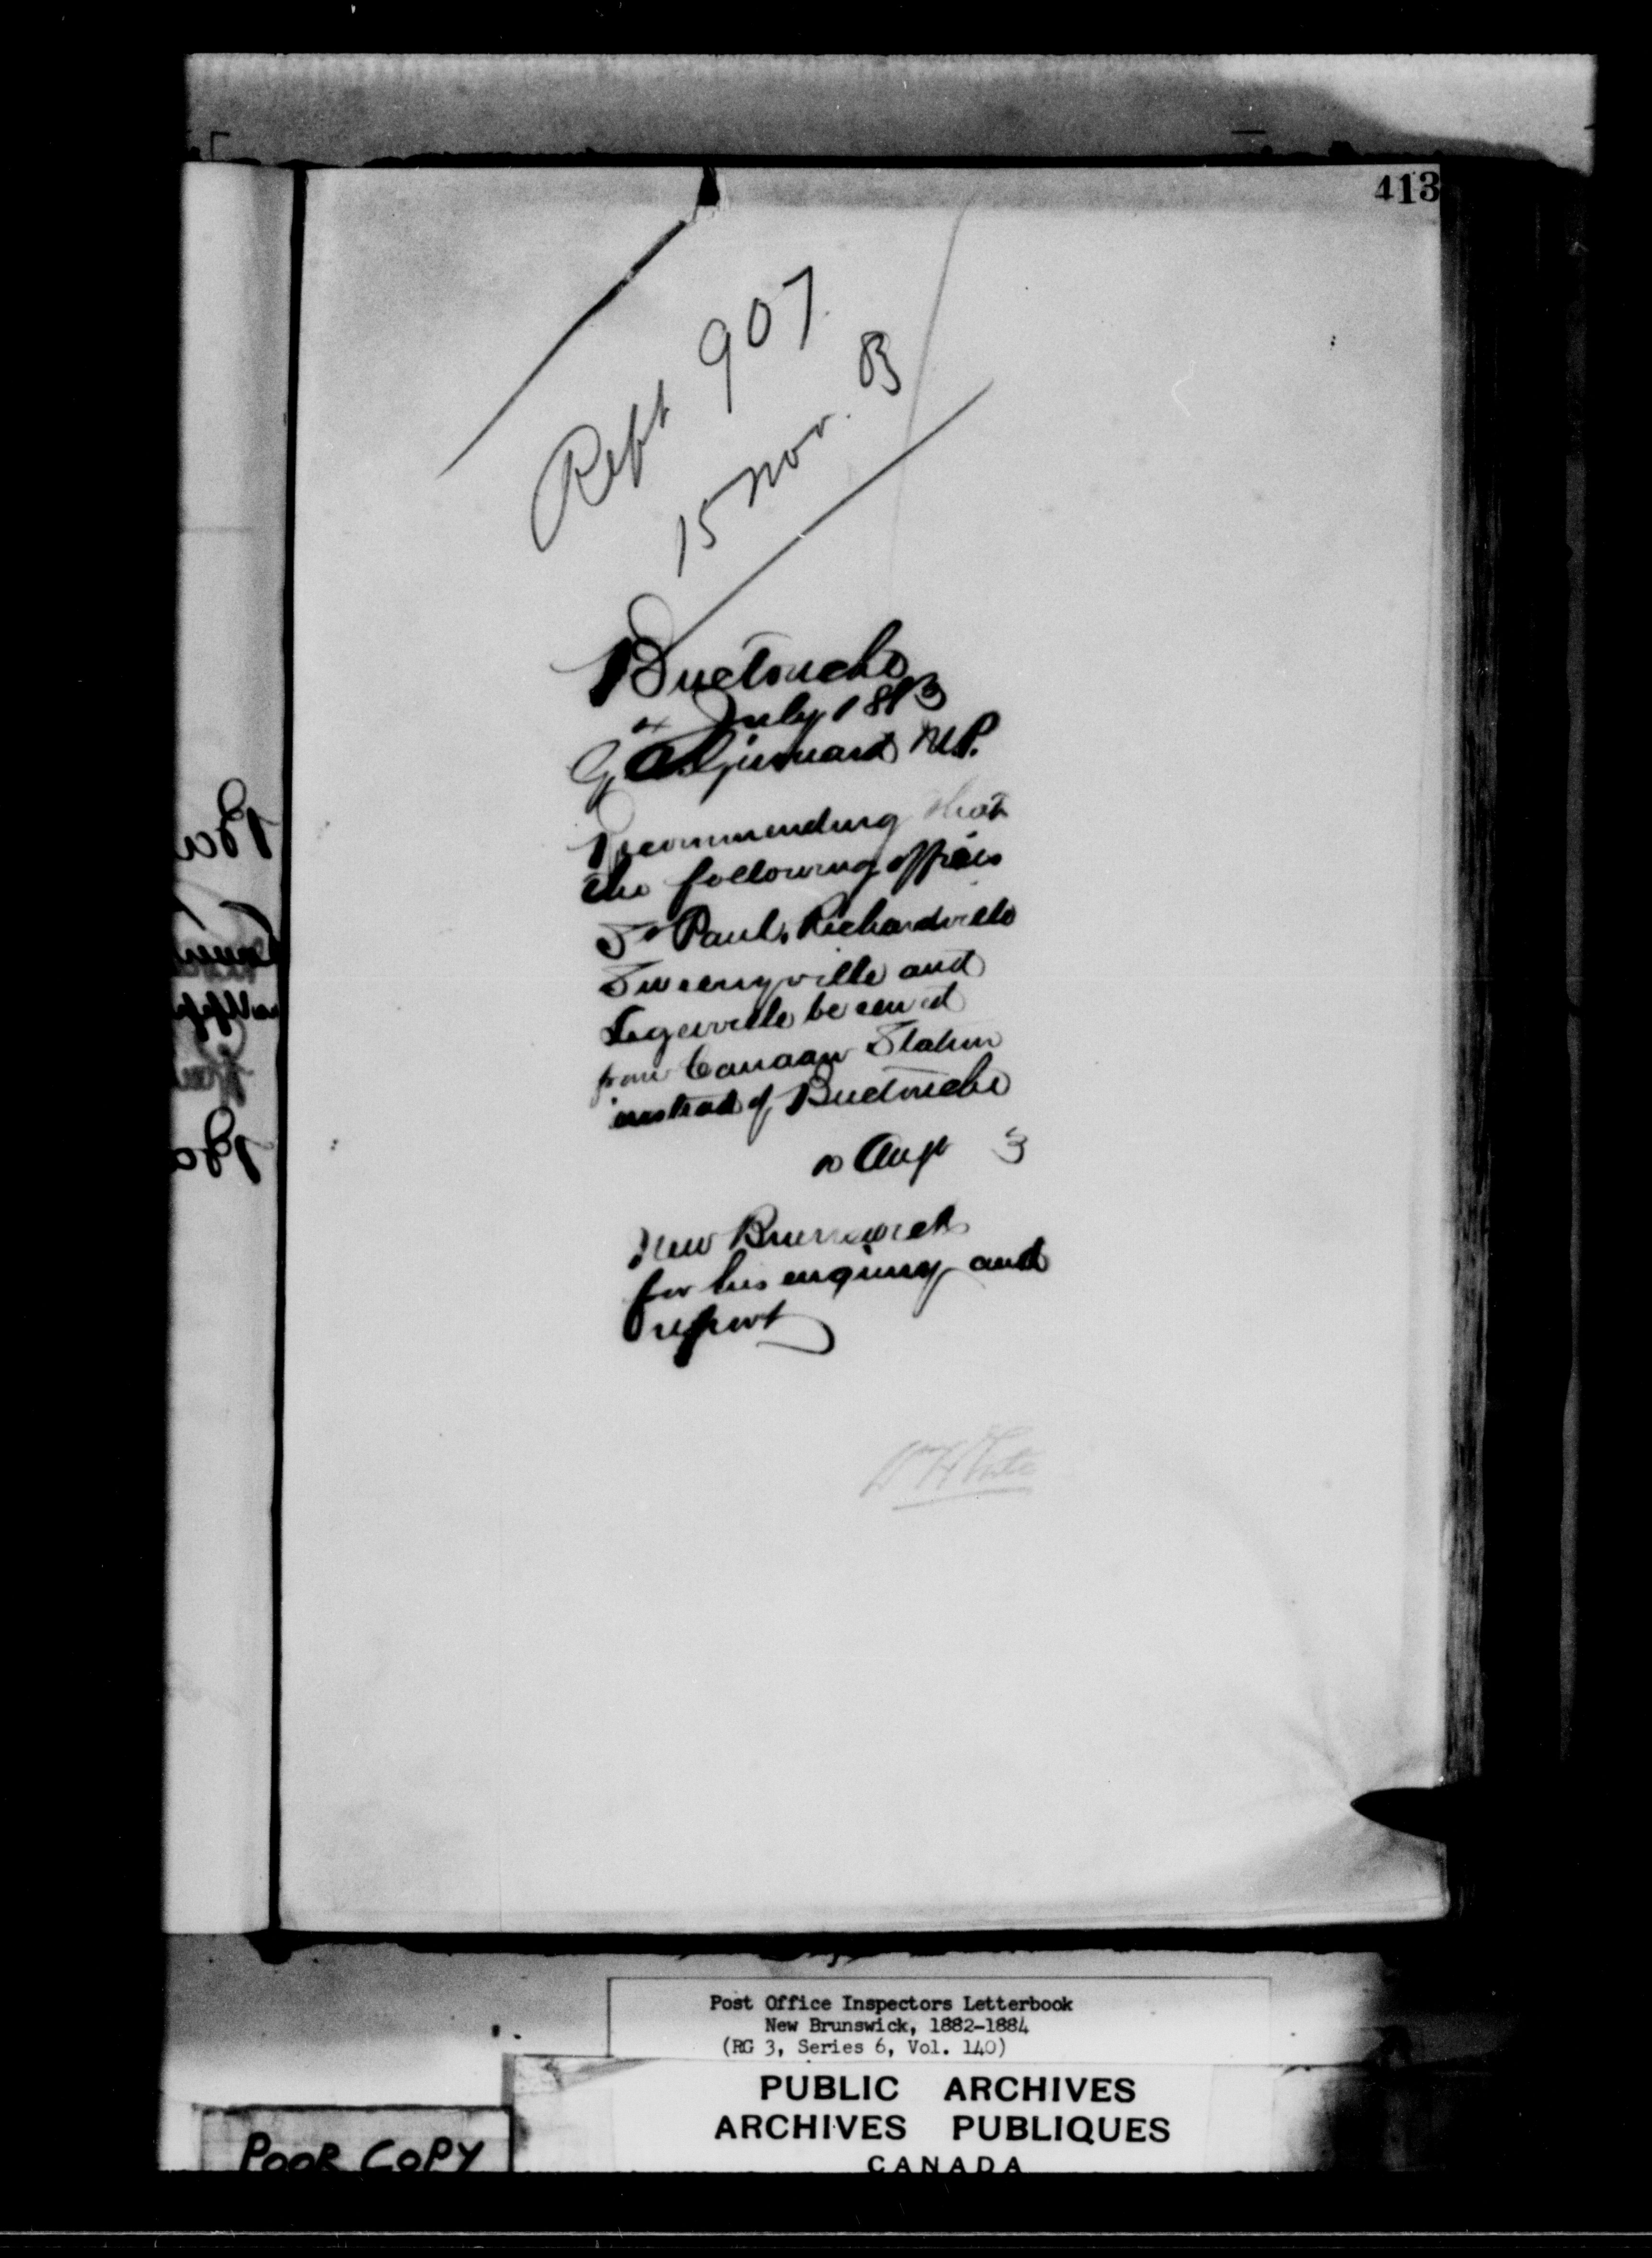 413
Rept 907.
15 Nov. 83
Buctouche
4 July 1883
G A Girouard M.P.
Recommending that
the following offices
St Paul, Richardville
Sweenyville and
Legerville be served
from Canaan Station
instead of Buctouche
10 Augt 3
New Brunswick
for his enquiry and
report
Post Office Inspectors Letterbook
New Brunswick, 1882-1884
(RG 3, Series 6, Vol. 140)
PUBLIC ARCHIVES
ARCHIVES PUBLIQUES
CANADA
POOR COPY